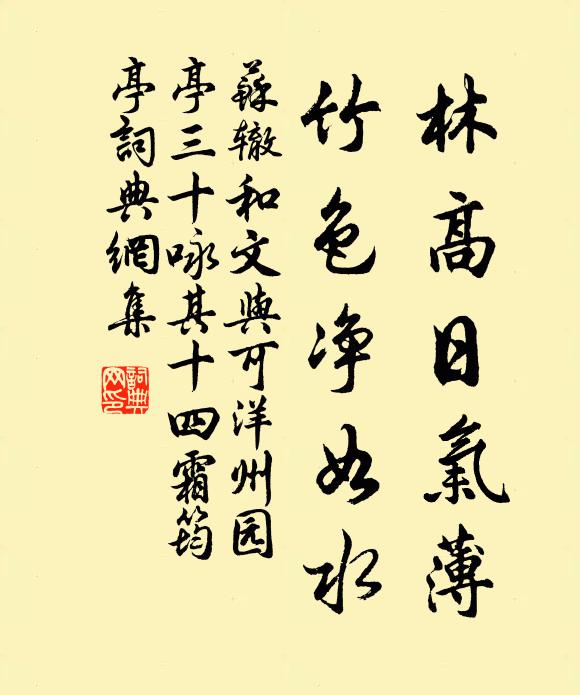 林高日氣薄
竹色净如水
蘇辙和文與可洋州园
亭三十咏其十四霜筠
亭詞典網集
詞典網印